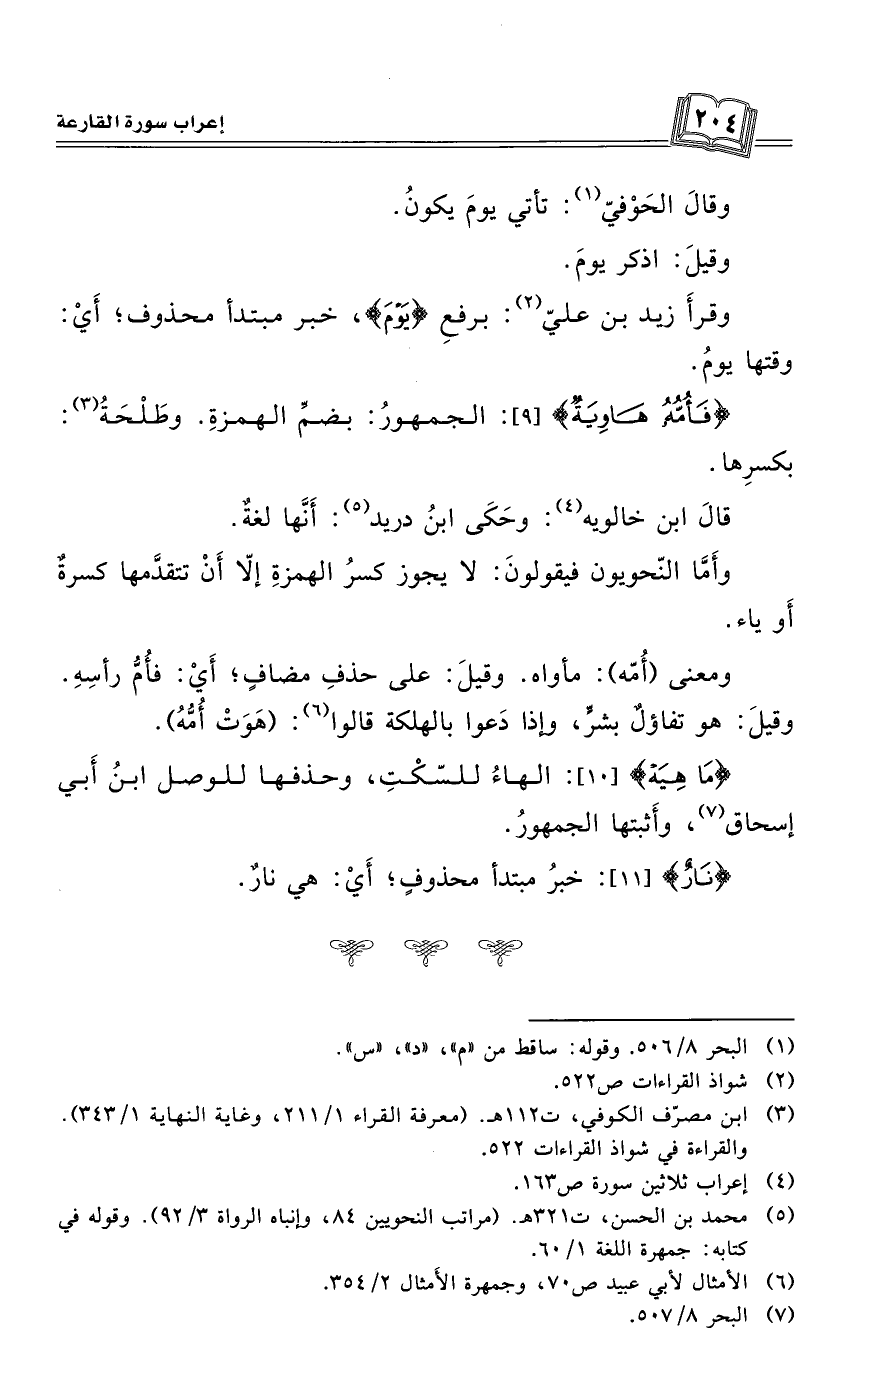 ٢٠٤
إعراب سورة القارعة
وقالَ الحَوْفيّ(١): تأتي يومَ يكونُ.
وقيلَ: اذكر يومَ.
وقرأَ زيد بن عليّ(٢): برفعِ ﴿يَوْمَ﴾، خبر مبتدأ محذوف؛ أَيْ:
وقتها يومُ.
﴿فَأُمُّهُ هَاوِيَةٌ﴾ [٩]: الجمهورُ: بضمِّ الهمزةِ. وطَلْحَةُ(٣):
بكسرِها.
قالَ ابن خالويه(٤): وحَكَى ابنُ دريد(٥): أَنَّها لغةٌ.
وأَمَّا النّحويون فيقولونَ: لا يجوز كسرُ الهمزةِ إلّا أَنْ تتقدَّمها كسرةٌ
أَو ياء.
ومعنى (أُمّه): مأواه. وقيلَ: على حذفِ مضاف؛ أَيْ: فأُمُّ رأسِهِ.
وقيلَ: هو تفاؤلٌ بشرٍّ، وإذا دَعوا بالهلكة قالوا(٦): (هَوَتْ أُمُّهُ).
﴿مَا هِيَهْ﴾ [١٠]: الهاءُ للسّكْتِ، وحذفها للوصل ابنُ أَبي
إسحاق(٧)، وأَثبتها الجمهورُ.
﴿نَارٌ﴾ [١١]: خبرُ مبتدأ محذوفٍ؛ أَيْ: هي نارٌ.
(١) البحر ٨/ ٥٠٦. وقوله: ساقط من «م»، «د»، «س».
(٢) شواذ القراءات ص٥٢٢.
(٣) ابن مصرّف الكوفي، ت١١٢هـ. (معرفة القراء ١/ ٢١١، وغاية النهاية ١/ ٣٤٣).
والقراءة في شواذ القراءات ٥٢٢.
(٤) إعراب ثلاثين سورة ص١٦٣.
(٥) محمد بن الحسن، ت٣٢١هـ. (مراتب النحويين ٨٤، وإنباه الرواة ٣/ ٩٢). وقوله في
كتابه: جمهرة اللغة ١/ ٦٠.
(٦) الأمثال لأبي عبيد ص٧٠، وجمهرة الأمثال ٢/ ٣٥٤.
(٧) البحر ٨/ ٥٠٧.